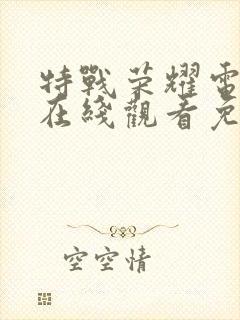 特戰荣耀電
在綫觀看免
空空情